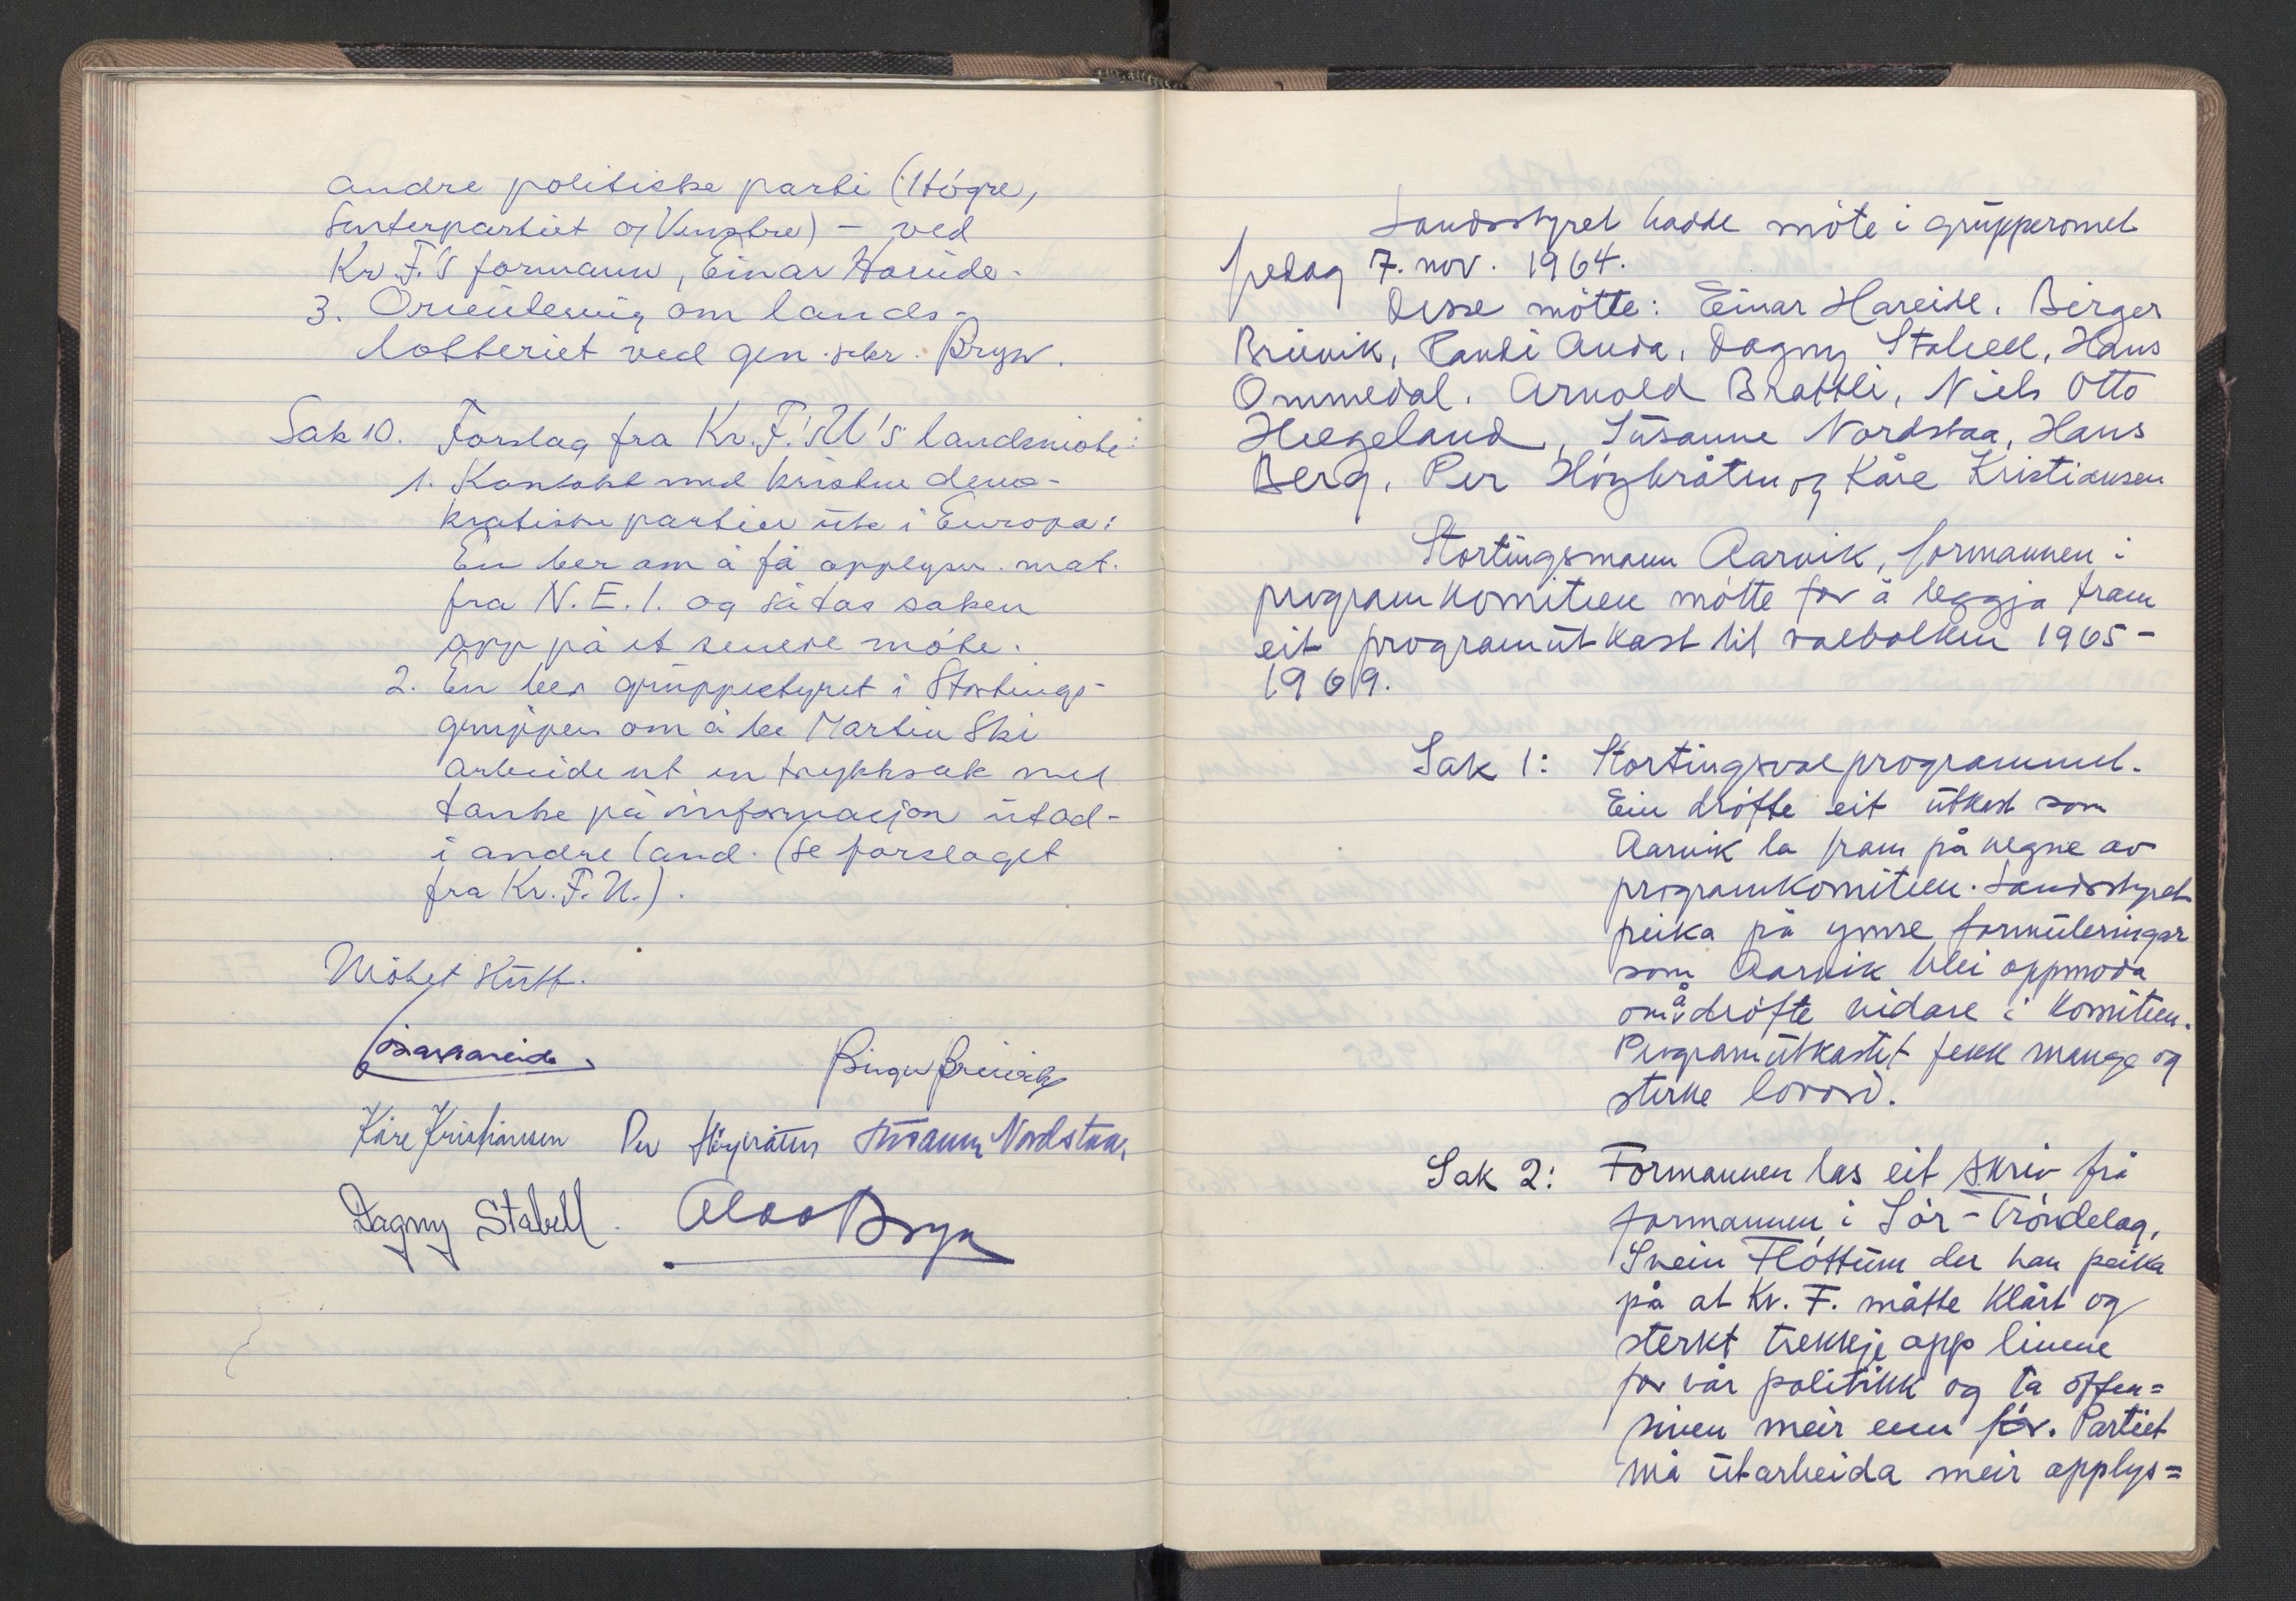 andre politiske parti (Högre,
Senterpartiet og Venstre) - ved
Kr. F.'s formann, Einar Hareide.
3. Orientering om lands-
lotteriet ved gen.sekr. Bryn.
Sak 10. Forslag fra Kr.F.'sU's landsmöte:
1. Kontakt med kristne demo-
kratiske partier ute i Europa:
En ber om å få opplysn. mat.
fra N.E.I. og så tas saken
opp på et senere möte.
2. En ber gruppestyret i Stortings-
gruppen om å be Martin Ski
arbeide ut en trykksak med
tanke på informasjon utad-
i andre land. (Se forslaget
fra Kr.F.U.).
Mötet slutt.
Einar Hareide
Birger Breivik
Kåre Kristiansen Per Höybråten Susanne Nordstaa
Dagny Stabell. Olav Bryn
Landsstyret hadde möte i grupperomet
fredag 7. nov. 1964.
Desse mötte: Einar Hareide, Birger
Breivik, Randi Anda, Dagny Stabell, Hans
Ommedal, Arnold Brattli, Niels Otto
Hægeland, Susanne Nordstaa, Hans
Berg, Per Höybråten og Kåre Kristiansen
Stortingsmann Aarvik, formannen i
programkomiteen mötte for å leggja fram
eit programutkast til valbolken 1965-
1969.
Sak 1: Stortingsvalprogrammet.
Ein dröfte eit utkast som
Aarvik la fram på vegne av
programkomiteen. Landsstyret
peika på ymse formuleringar
som Aarvik blei oppmoda
om å dröfte vidare i komiteen.
Programutkastet fekk mange og
sterke lovord.
Sak 2: Formannen las eit skriv frå
formannen i Sör-Tröndelag,
Svein Flöttum der han peika
på at Kr. F. måtte klårt og
sterkt trekkje opp linene
for vår politikk og ta offen=
siven meir enn för. Partiet
må utarbeida meir opplys=